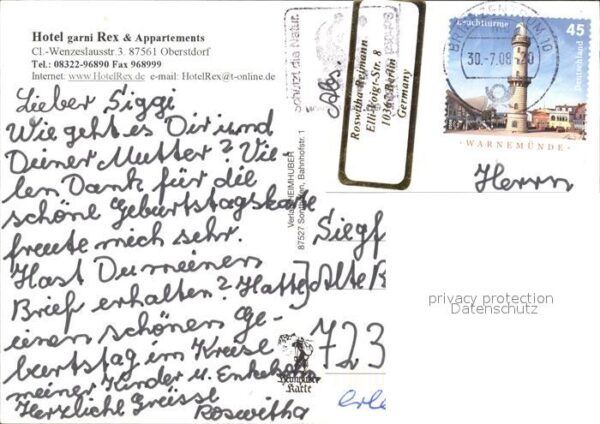 Hotel garni Rex & Appartements
Cl.-Wenzeslausstr. 3. 87561 Oberstdorf
Tel.: 08322-96890 Fax 968999
Internet: www.HotelRex.de e-mail: HotelRex@t-online.de
Lieber Siggi
Wie geht es Dir und
Deiner Mutter? Vie-
len Dank für die
schöne Geburtstagskarte
freute mich sehr.
Hast Du meinen
Brief erhalten? Hatte
einen schönen Ge-
burtstag im Kreise
meiner Kinder u. Enkelsohn
Herzliche Grüsse
Roswitha
Verlag HEIMHUBER
87527 Sonthofen, Bahnhofstr. 1
Heimhuber
Karte
Schützt die Natur
Abs.
Roswitha Reimann
Elli-Voigt-Str. 8
Berlin
Germany
BRIEFZENTRUM 10
30.-7.08-20
Leuchttürme
45
Deutschland
WARNEMÜNDE
Herrn
Siegf
Alte B
723
privacy protection
Datenschutz